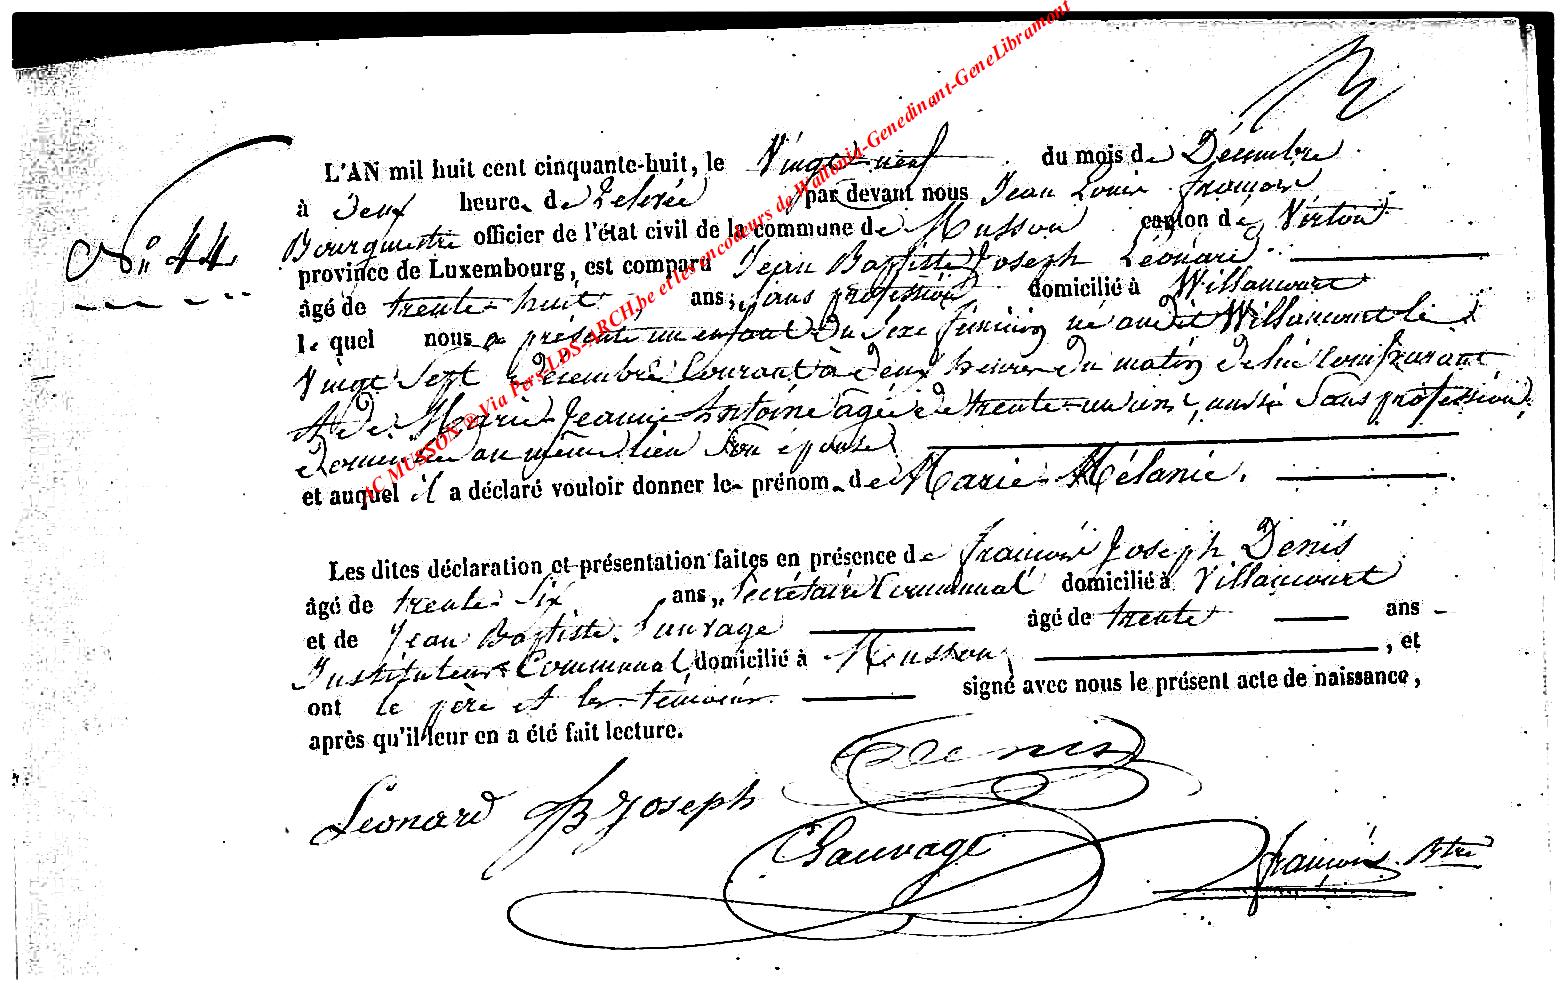 N° 44
L'AN mil huit cent cinquante-huit, le Vingt-neuf du mois de Décembre
à deux heures de relevée par devant nous Jean Louis François
Bourgmestre officier de l'état civil de la commune de Musson canton de Virton
province de Luxembourg, est comparu Jean Baptiste Joseph Léonard
âgé de trente-huit ans, Sans profession domicilié à Willancourt
lequel nous a présenté un enfant du sexe féminin né audit Willancourt le
Vingt Sept décembre Courant à deux heures du matin de lui Comparant
et de Marie Jeanne Antoine âgée de trente-un ans, aussi Sans profession,
domiciliée au même lieu Son épouse
et auquel il a déclaré vouloir donner les prénoms de Marie-Mélanie.
Les dites déclaration et présentation faites en présence de François Joseph Denis
âgé de trente-Six ans, Secrétaire Communal domicilié à Villancourt
et de Jean Baptiste Sauvage âgé de trente ans
Instituteur Communal domicilié à Musson, et
ont le père et les témoins signé avec nous le présent acte de naissance,
après qu'il leur en a été fait lecture.
Denis
Léonard JB Joseph
Sauvage
François Btre
AC MUSSON @ Via Pers LDS-ARCH.be et les encodeurs de Wallonia-Genedinant-GeneLibramont